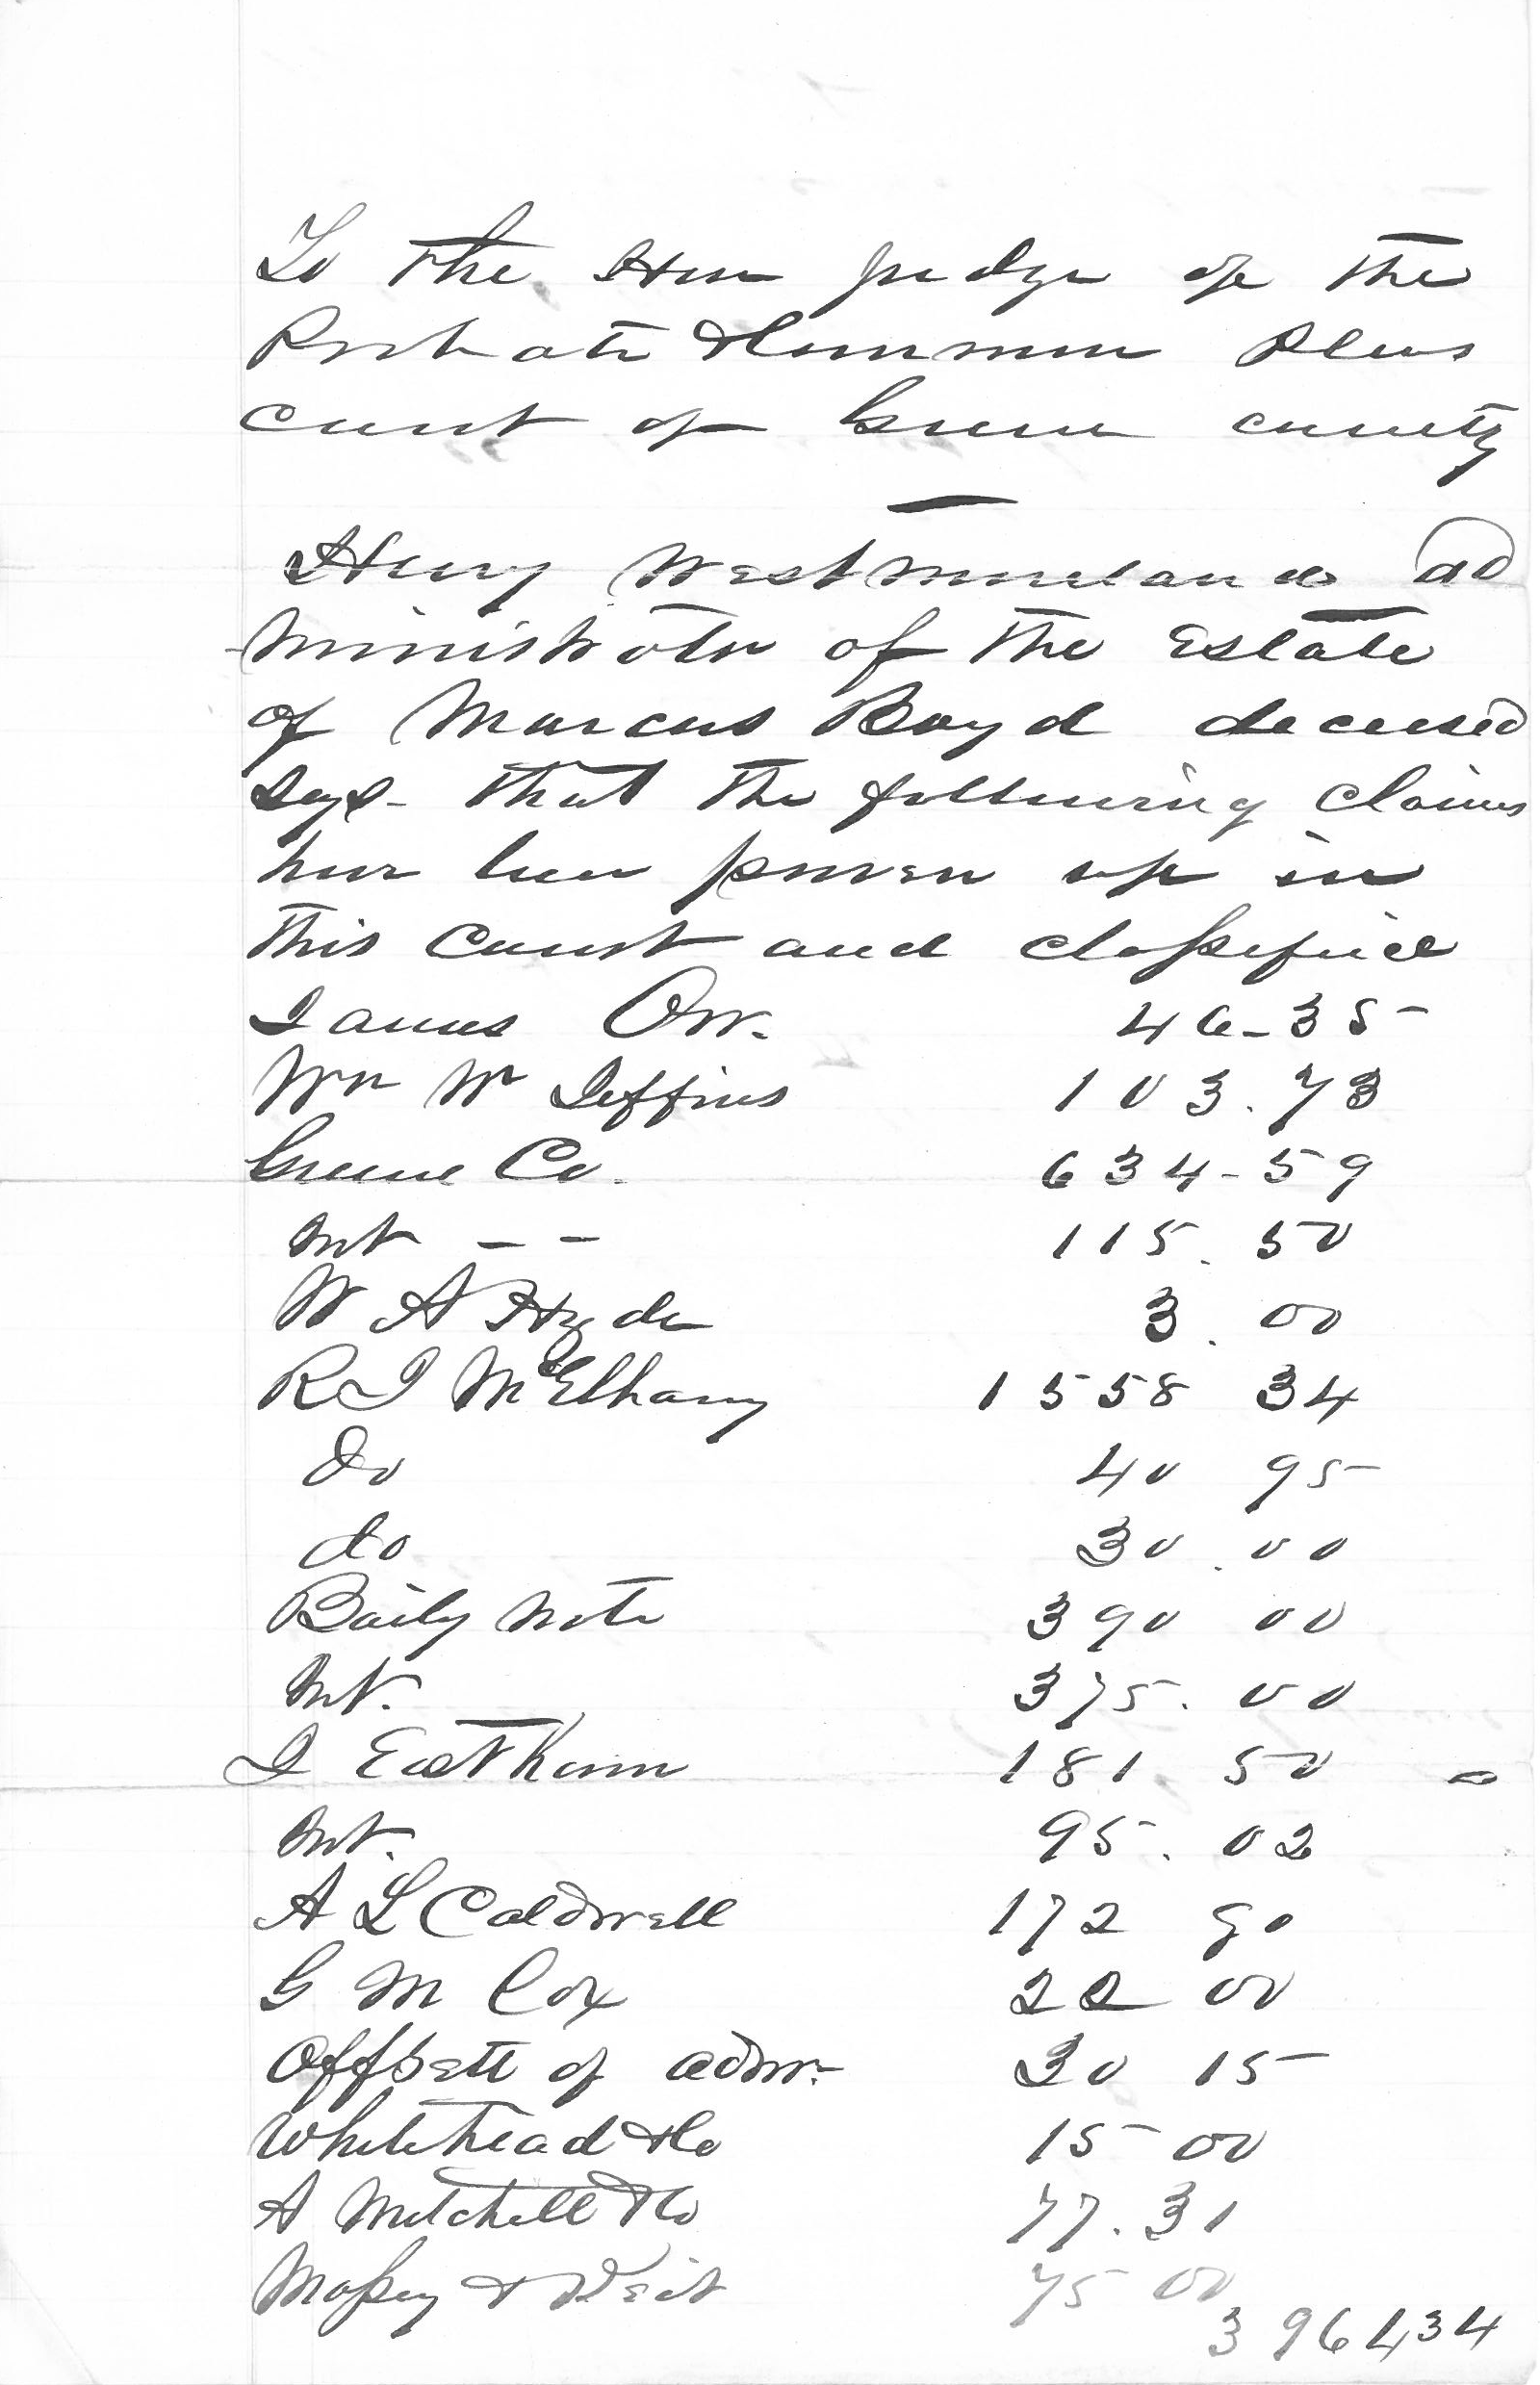 To the Hon Judge of the
Probate & Common Pleas
court of Greene county
Henry Westmoreland ad
ministrator of the Estate
of Marcus Boyd deceased
says that the following claims
have been proven up in
this Court and classified
James Orr. 46-35
Wm W Jeffries 103.73
Greene Co. 634-59
Int - - 115.50
W A Hyde 3.00
R J McElhany 1558 34
Do 40 95
do 30.00
Baily note 390 00
Int. 375.00
J Eastham 181.50
Int. 95.02
A L Caldwell 172 90
G M Cox 22 00
Offsett of admr. 30 15
Whitehead & Co 15 00
A Mitchell & Co 77.31
Massey & 75 00
3 964 34